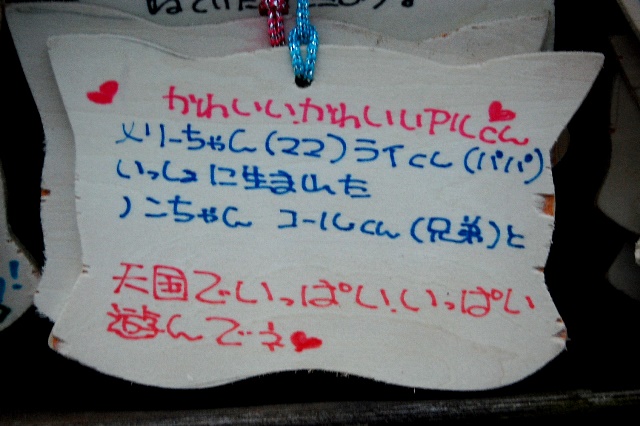 かわいい!かわいいPILくん
メリーちゃん(ママ)ライくん(パパ)
いっしょに生まれた
ノンちゃん コールくん(兄弟)と
天国でいっぱい!いっぱい
遊んでネ